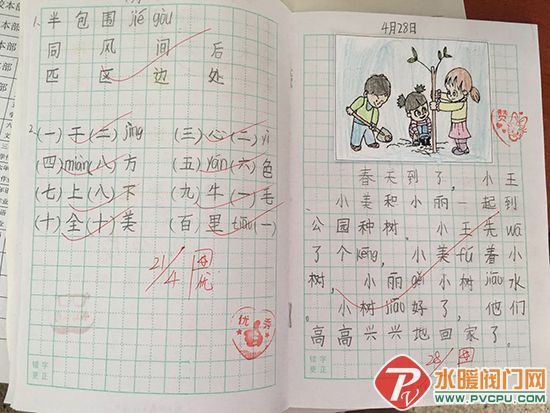 1. 半包围 jié gòu
同 风 间 后
匹 区 边 处
2. (一)干(二)jìng (三)心(二)yì
(四)miàn(八)方 (五)yán(六)色
(七)上(八)下 (九)牛(一)毛
(十)全(十)美 (百)里 tiāo(一)
21/4 优
优 秀
错字更正
4月28日
赞
春天到了，小王
小美和小丽一起到
公园种树。小王先wā
了个kēng，小美fú着小
树，小丽gěi小树jiāo水
。小树jiāo好了，他们
高高兴兴地回家了。
28/
错字更正
水暖阀门网
WWW.PVCPU.COM